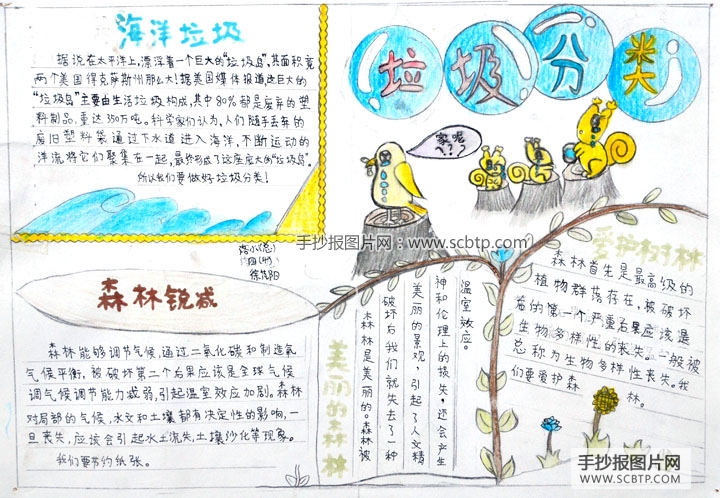 海洋垃圾
据说在太平洋上,漂浮着一个巨大的“垃圾岛”,其面积竟
两个美国得克萨斯州那么大!据美国媒体报道这巨大的
“垃圾岛”主要由生活垃圾构成,其中80%都是废弃的塑
料制品,重达350万吨。科学家们认为,人们随手丢弃的
废旧塑料袋通过下水道进入海洋,不断运动的
洋流将它们聚集在一起,最终构成了这座庞大的“垃圾岛”。
所以我们要做好垃圾分类!
垃圾分类
家呢
???
手抄报图片网:www.scbtp.com
森林锐减
森林能够调节气候,通过二氧化碳和制造氧
气候平衡,被破坏第二个后果应该是全球气候
调气候调节能力减弱,引起温室效应加剧。森林
对局部的气候,水文和土壤都有决定性的影响,一
旦丧失,应该会引起水土流失,土壤沙化等现象。
我们要节约纸张。
美丽的森林
森林是美丽的。森林被
破坏后我们就失去了一种
美丽的景观,引起了人文精
神和伦理上的损失,还会产生
温室效应。
爱护树林
森林首先是最高级的
植物群落存在,被破坏
后的第一个严重后果应该是
生物多样性的丧失。一般被
总称为生物多样性丧失。我
们要爱护森林。
手抄报图片网
WWW.SCBTP.COM